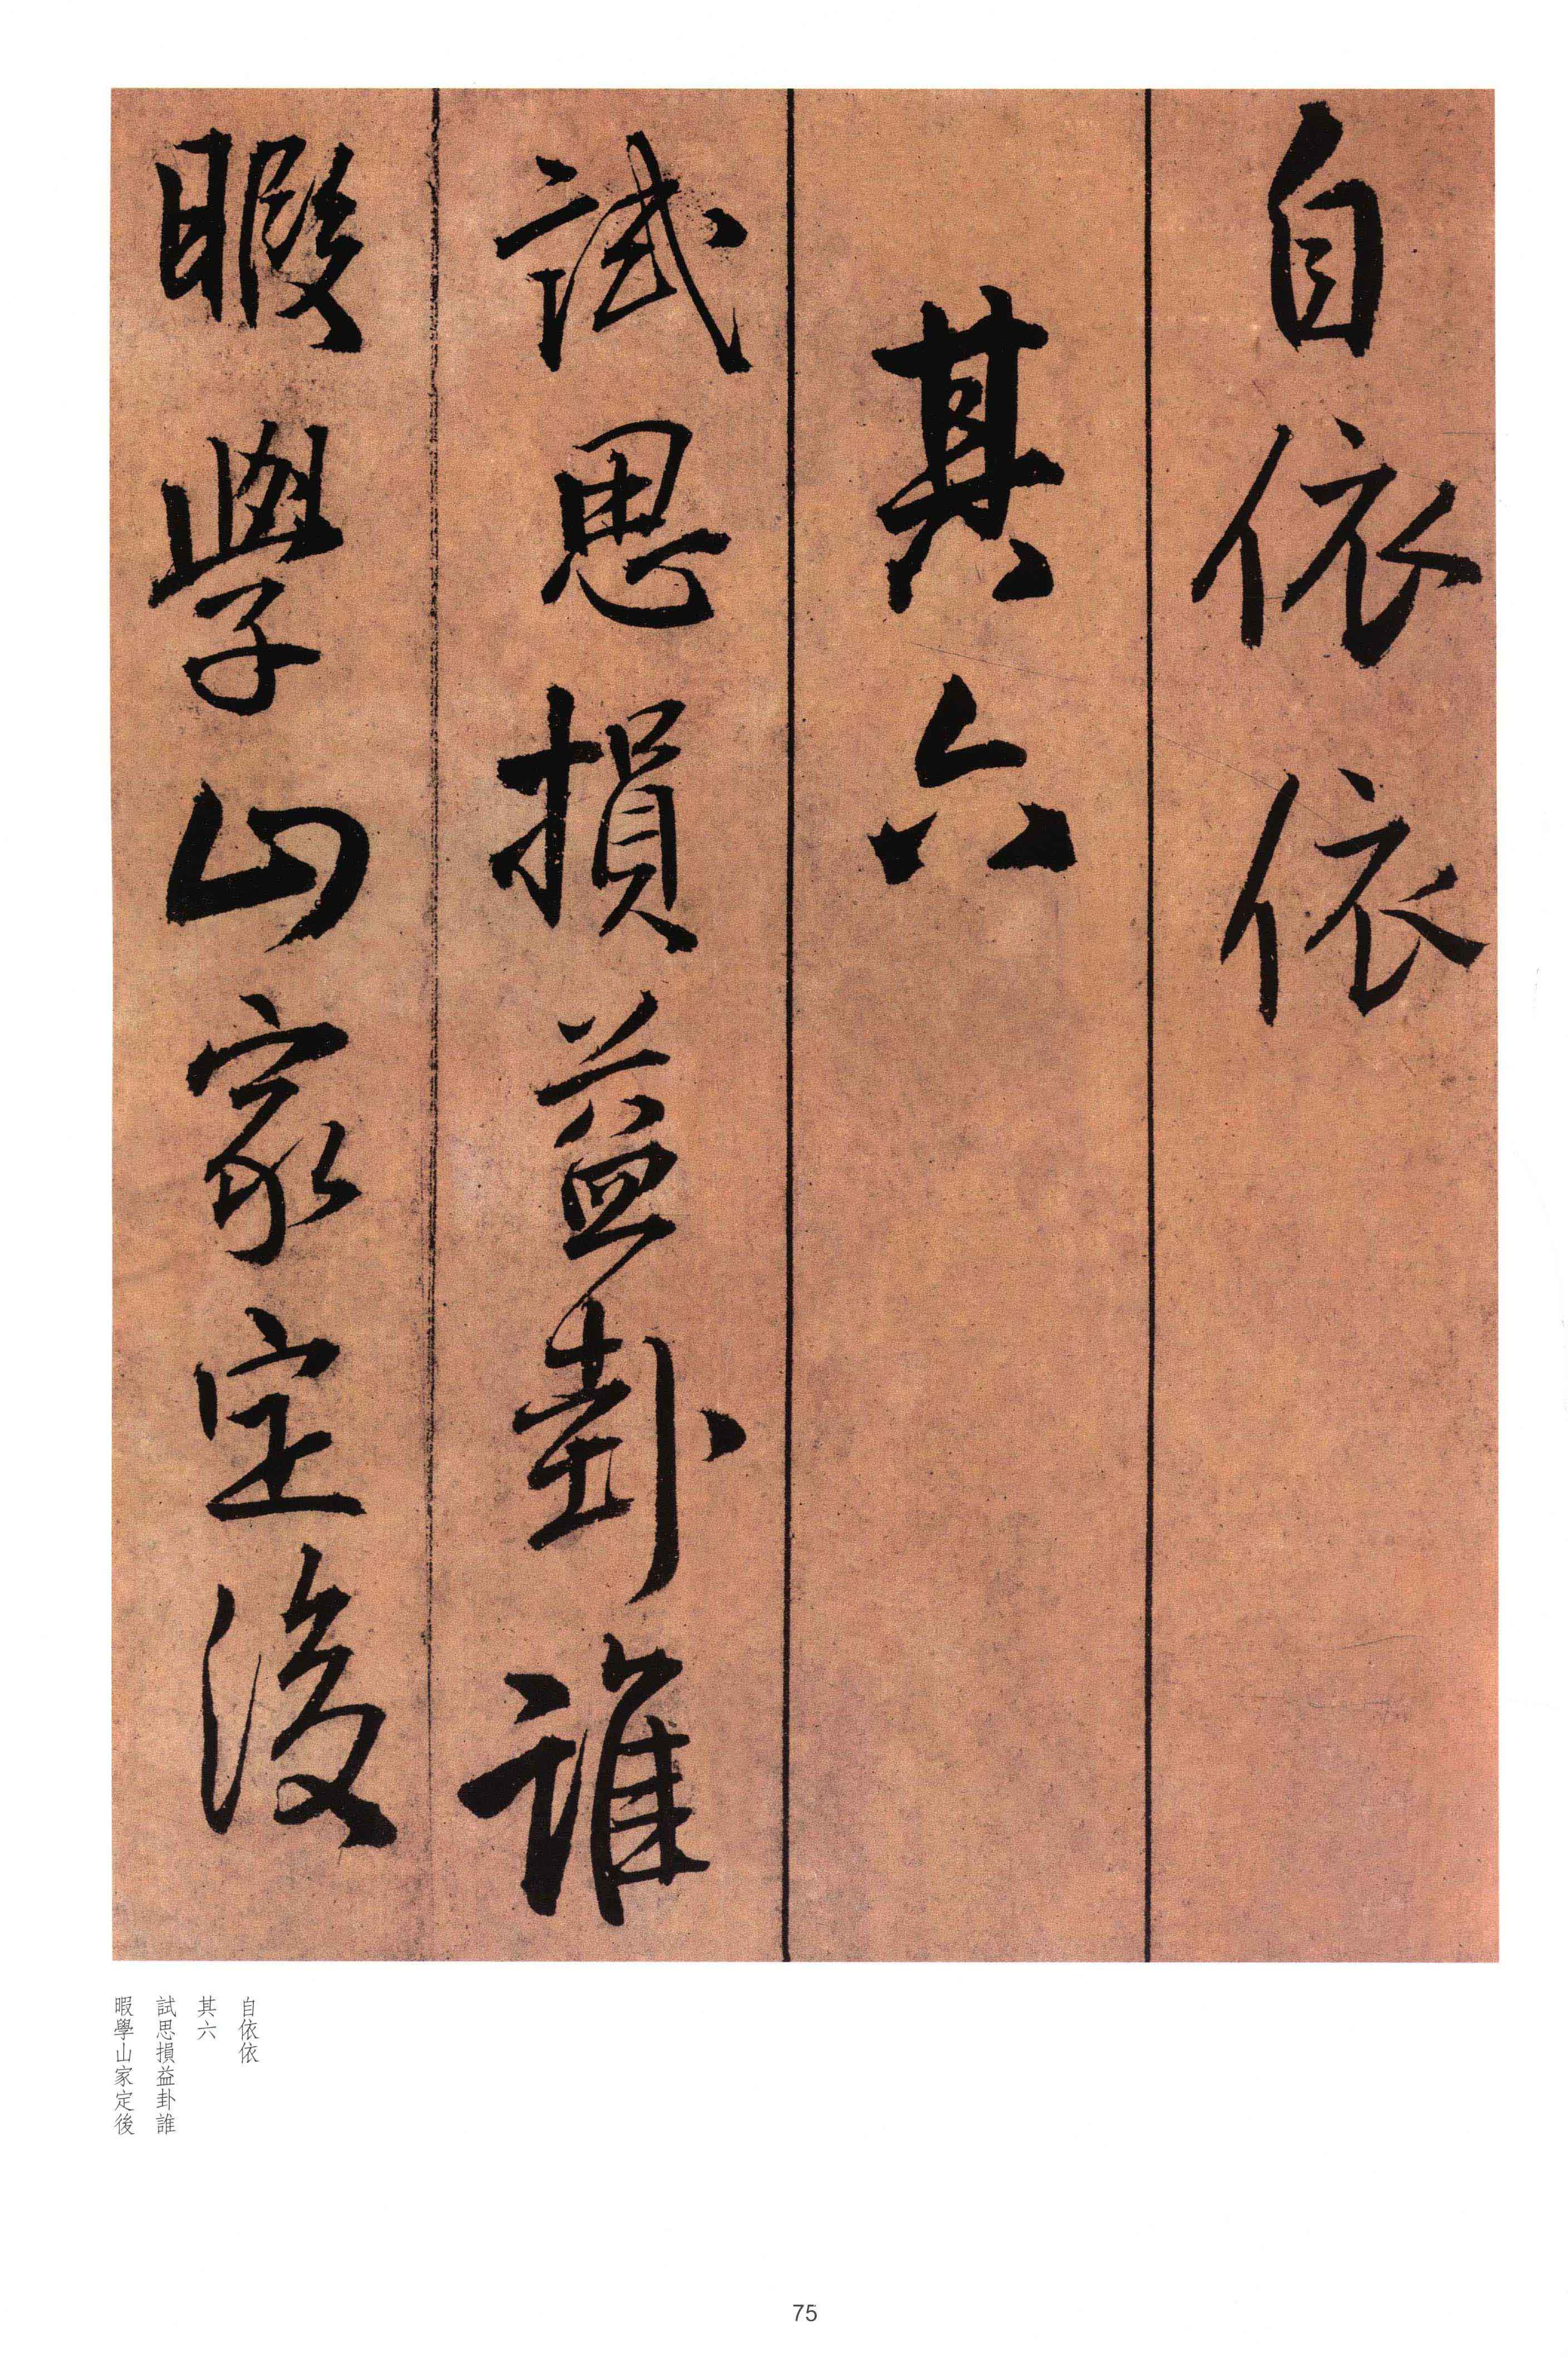 自依依
其六
試思損益卦誰
暇學山家定後
自依依
其六
試思損益卦誰
暇學山家定後
75